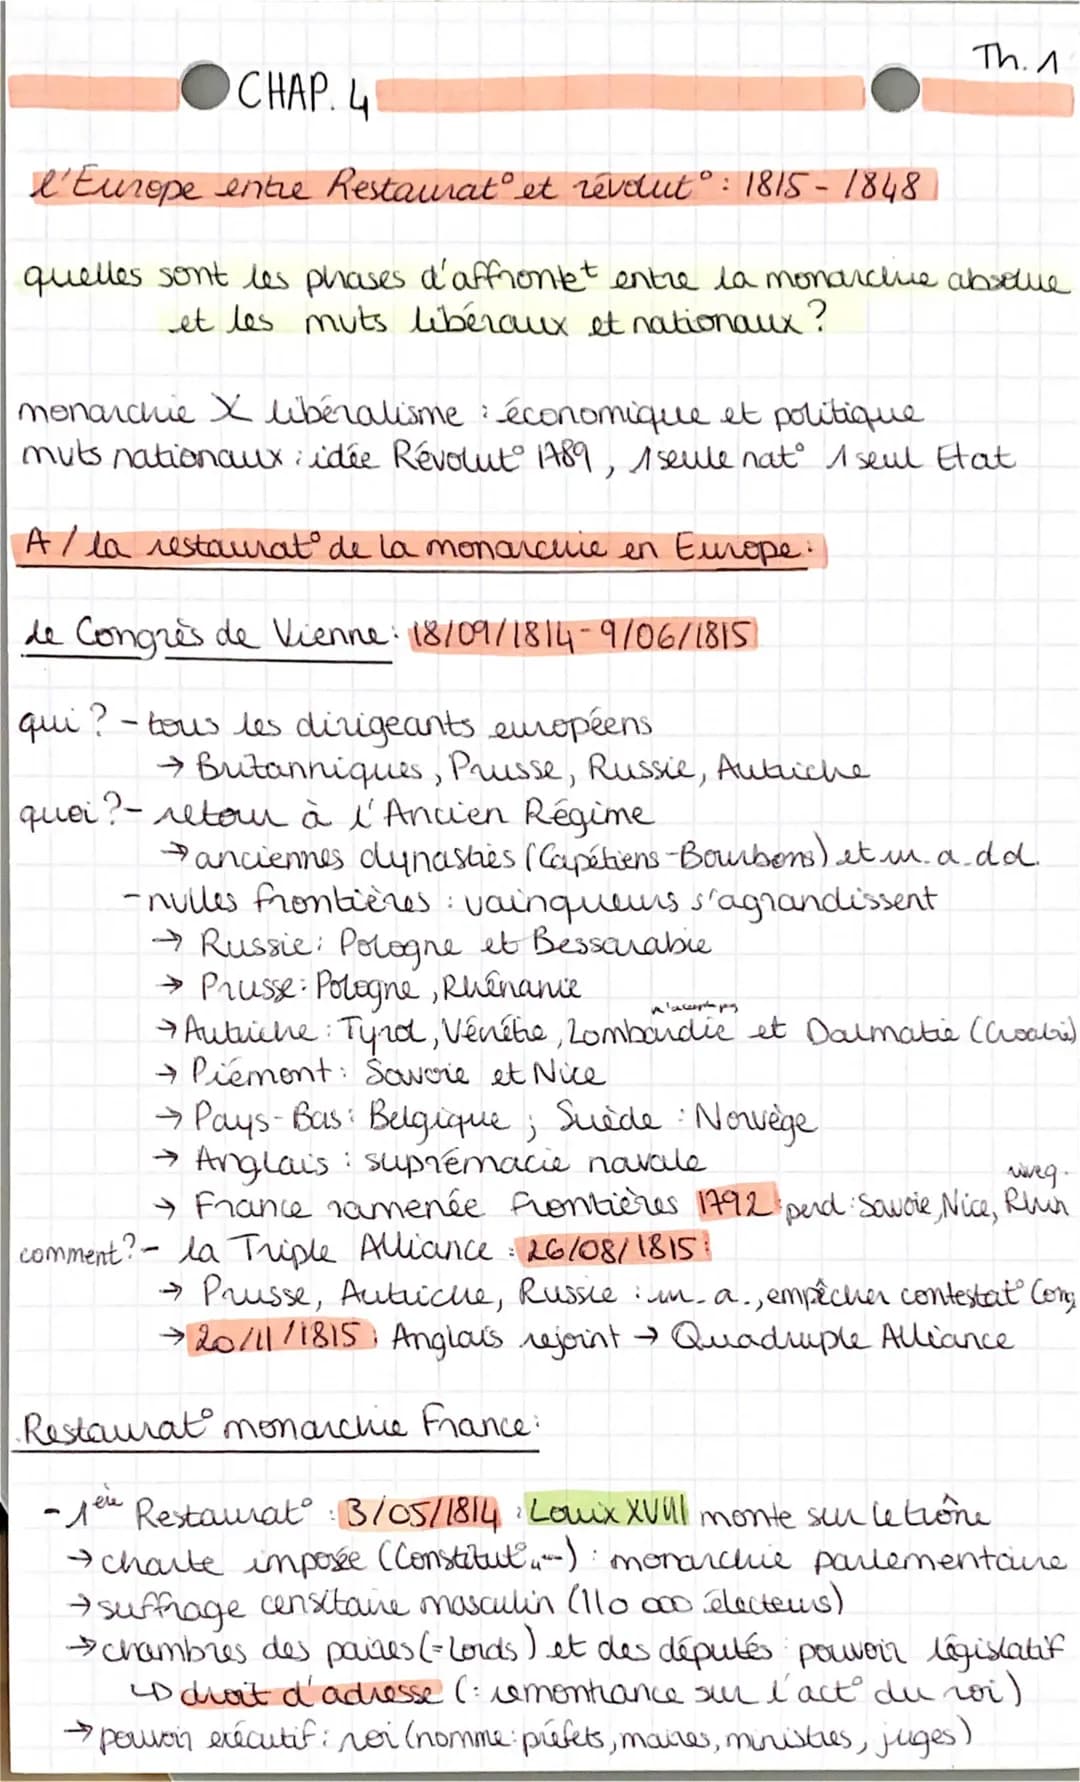 Th. 1
CHAP. 4
l'Europe entre Restaurat° et révolut° : 1815 - 1848
quelles sont les phases d'affrontet entre la monarchie absolue
et les mvts libéraux et nationaux ?
monarchie X libéralisme : économique et politique
mvts nationaux : idée Révolut° 1789, 1 seule nat° 1 seul Etat
A / la restaurat° de la monarchie en Europe :
le Congrès de Vienne : 18/09/1814 - 9/06/1815
qui ? - tous les dirigeants européens
→ Britanniques, Prusse, Russie, Autriche
quoi ? - retour à l'Ancien Régime
→ anciennes dynasties (Capétiens-Bourbons) et m. a. d d.
- nvlles frontières : vainqueurs s'agrandissent
→ Russie : Pologne et Bessarabie
→ Prusse : Pologne, Rhénanie
n'accepte pas
→ Autriche : Tyrol, Vénétie, Lombardie et Dalmatie (Croatie)
→ Piémont : Savoie et Nice
→ Pays-Bas : Belgique ; Suède : Norvège
→ Anglais : suprémacie navale
→ France ramenée frontières 1792 : perd : Savoie, Nice, Rhin
comment ? - la Triple Alliance : 26/08/1815 :
→ Prusse, Autriche, Russie : m. a., empêcher contestat° Cong
→ 20/11/1815 : Anglais rejoint → Quadruple Alliance
Restaurat° monarchie France :
- 1ère Restaurat° : 3/05/1814 : Louix XVIII monte sur le trône
→ charte imposée (Constitut°) : monarchie parlementaire
→ suffrage censitaire masculin (110 000 électeurs)
→ chambres des paires (= Lords) et des députés : pouvoir législatif
↳ droit d'adresse (: remontrance sur l'act° du roi)
→ pouvoir exécutif : roi (nomme : préfets, maires, ministres, juges)